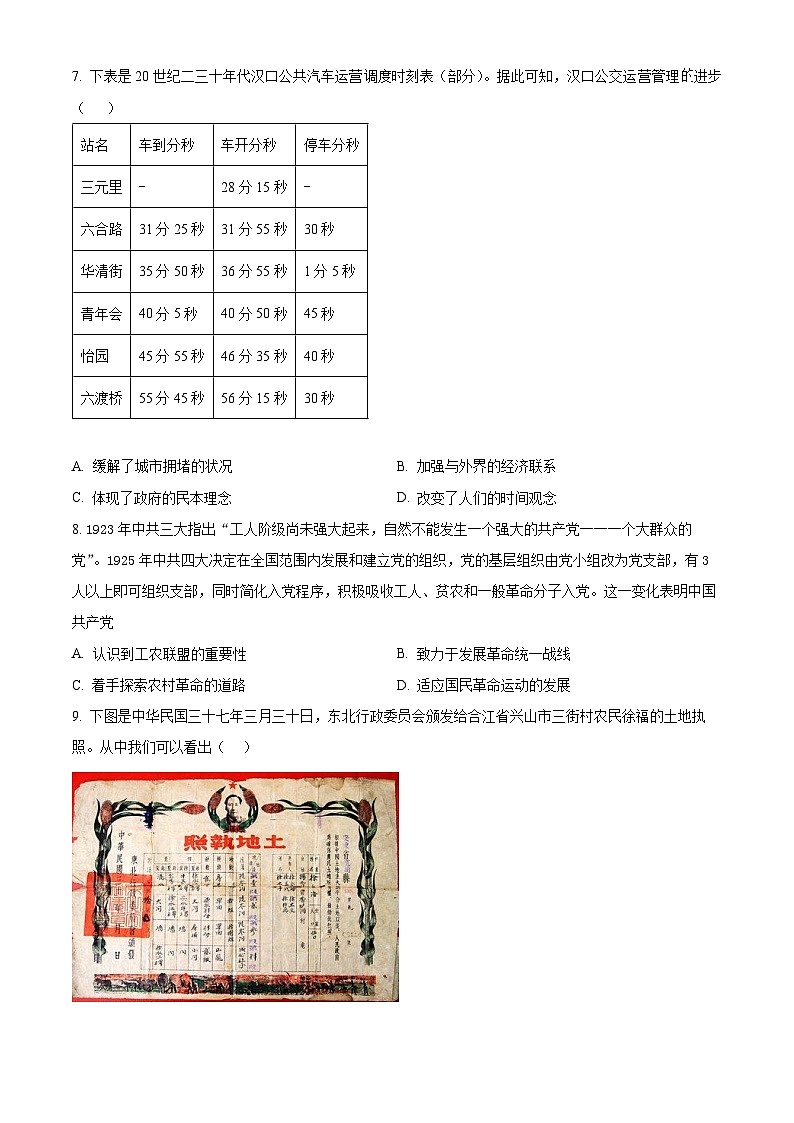 7. 下表是20世纪二三十年代汉口公共汽车运营调度时刻表（部分）。据此可知，汉口公交运营管理的进步
（ ）
站名 车到分秒 车开分秒 停车分秒
三元里 - 28分15秒 -
六合路 31分25秒 31分55秒 30秒
华清街 35分50秒 36分55秒 1分5秒
青年会 40分5秒 40分50秒 45秒
怡园 45分55秒 46分35秒 40秒
六渡桥 55分45秒 56分15秒 30秒
A. 缓解了城市拥堵的状况 B. 加强与外界的经济联系
C. 体现了政府的民本理念 D. 改变了人们的时间观念
8. 1923年中共三大指出“工人阶级尚未强大起来，自然不能发生一个强大的共产党一一一个大群众的
党”。1925年中共四大决定在全国范围内发展和建立党的组织，党的基层组织由党小组改为党支部，有3
人以上即可组织支部，同时简化入党程序，积极吸收工人、贫农和一般革命分子入党。这一变化表明中国
共产党
A. 认识到工农联盟的重要性 B. 致力于发展革命统一战线
C. 着手探索农村革命的道路 D. 适应国民革命运动的发展
9. 下图是中华民国三十七年三月三十日，东北行政委员会颁发给合江省兴山市三街村农民徐福的土地执
照。从中我们可以看出（ ）
照執地土
中華民國